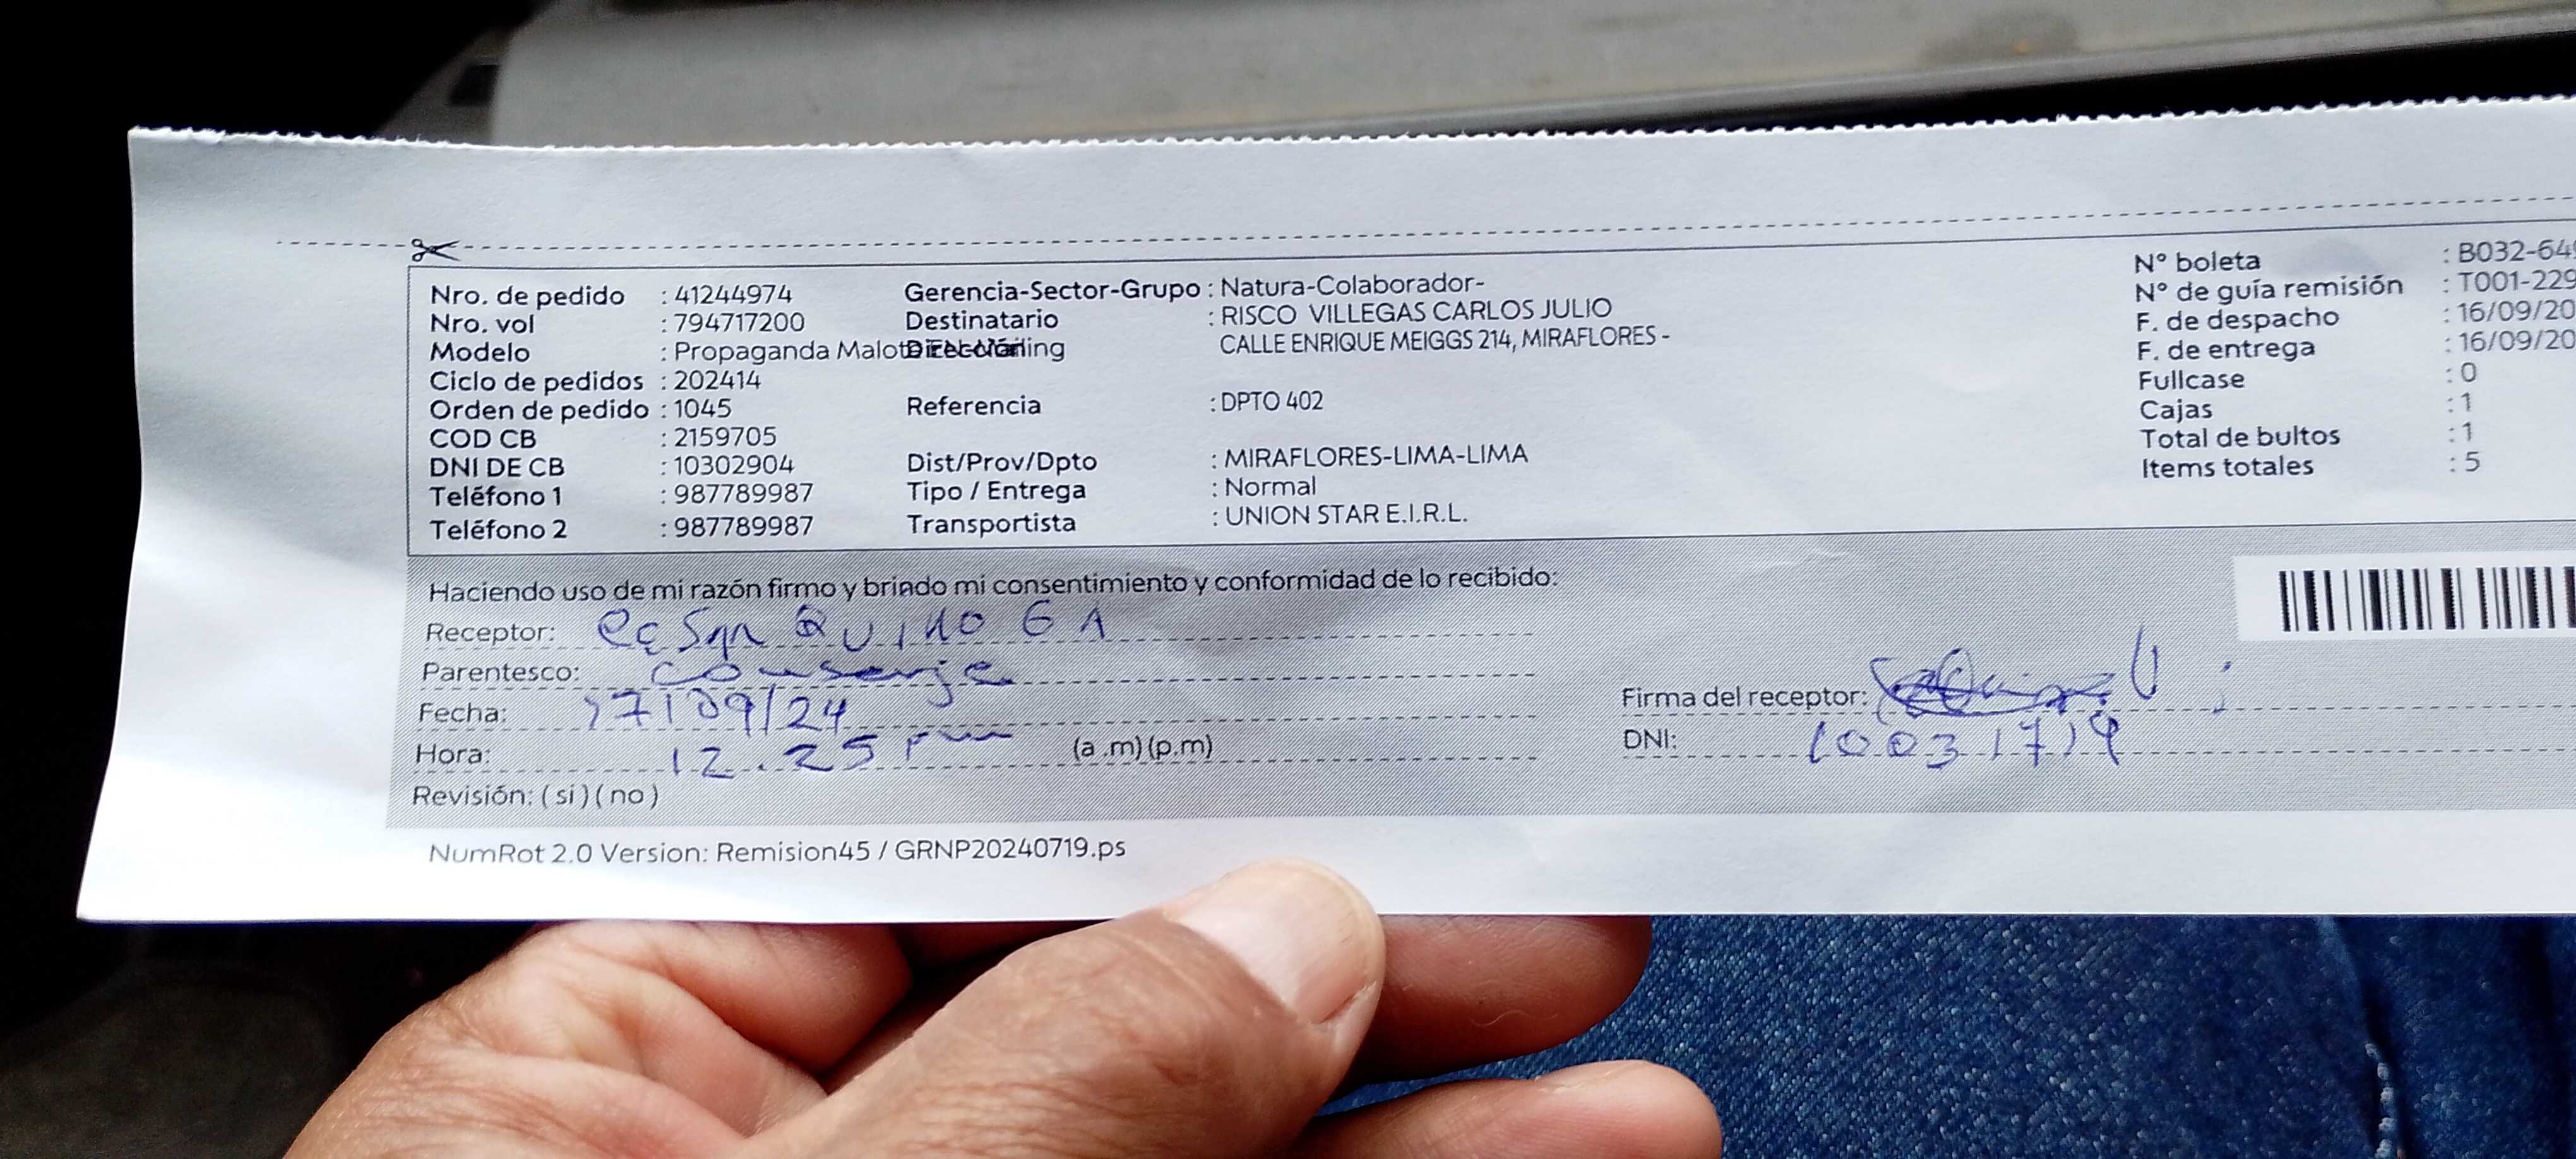 Nro. de pedido : 41244974
Nro. vol : 794717200
Modelo : Propaganda Malote EN-Mailing
Ciclo de pedidos : 202414
Orden de pedido : 1045
COD CB : 2159705
DNI DE CB : 10302904
Teléfono 1 : 987789987
Teléfono 2 : 987789987
Gerencia-Sector-Grupo : Natura-Colaborador-
Destinatario : RISCO VILLEGAS CARLOS JULIO
Dirección CALLE ENRIQUE MEIGGS 214, MIRAFLORES -
Referencia : DPTO 402
Dist/Prov/Dpto : MIRAFLORES-LIMA-LIMA
Tipo / Entrega : Normal
Transportista : UNION STAR E.I.R.L.
N° boleta : B032-649
N° de guía remisión : T001-229
F. de despacho : 16/09/20
F. de entrega : 16/09/20
Fullcase : 0
Cajas : 1
Total de bultos : 1
Items totales : 5
Haciendo uso de mi razón firmo y brindo mi consentimiento y conformidad de lo recibido:
Receptor:
Parentesco: conserje
Fecha: 17/09/24
Hora: 12.25 pm (a.m)(p.m)
Revisión: (si)(no)
Firma del receptor:
DNI: 10031719
NumRot 2.0 Version: Remision45 / GRNP20240719.ps